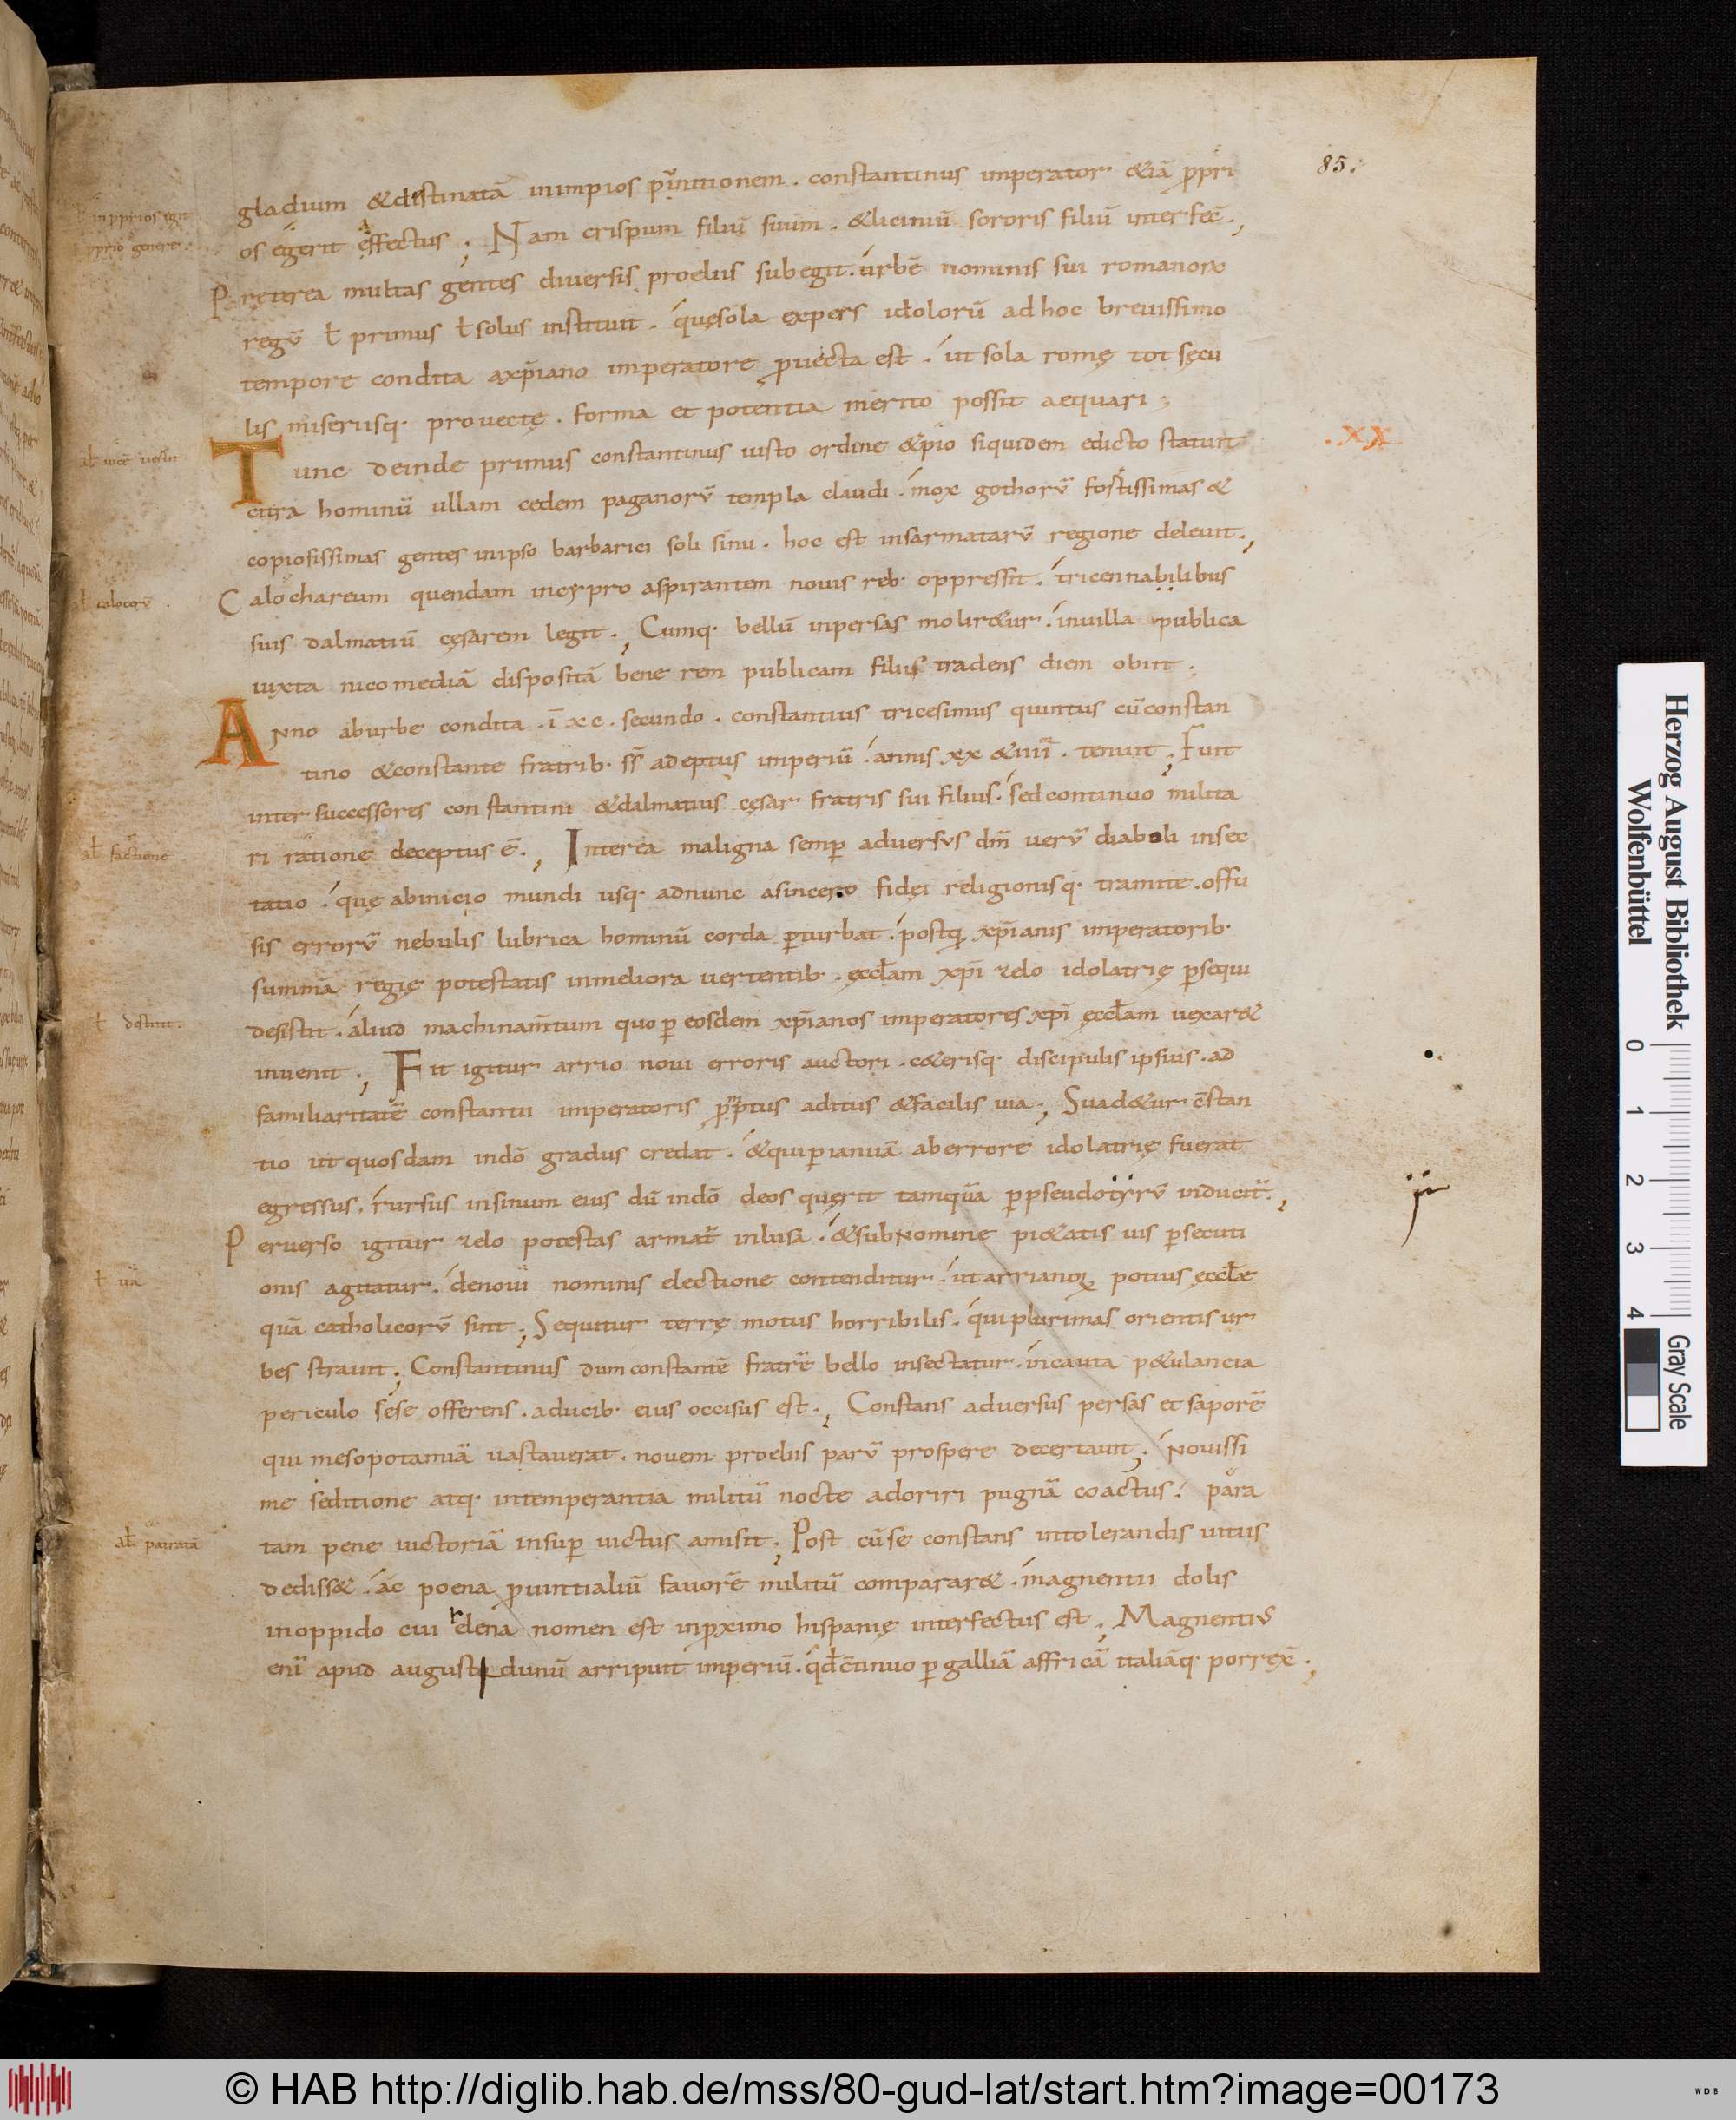 85.
gladium &destinatā inimpios punitionem . constantinus imperator &iā ppri
os egerit effectus ; Nam crispum filiū suum . &liciniū sororis filiū interfec̄ .,
Pręterea multas gentes diuersis proeliis subegit . urbē nominis sui romanorx
regū ł primus ł solus instituit . quęsola expers idolorū adhoc breuissimo
tempore condita axp̄iano imperatore prouecta est . ut sola romę tot sęcu
lis miseriisq· prouectę . forma et potentia merito possit aequari ;
.XX.
Tunc deinde primus constantinus iusto ordine &pio siquidem edicto statuit
citra hominū ullam cedem paganorū templa claudi . mox gothorū fortissimas &
copiosissimas gentes inipso barbarici soli sinu . hoc est insarmatarū regione deleuit .,
Calochareum quendam incypro aspirantem nouis reb· oppressit . tricennabilibus
suis dalmatiū cęsarem legit ., Cumq· bellū inpersas molir&ur . inuilla publica
iuxta nicomediā dispositā bene rem publicam filiis tradens diem obiit .
Anno aburbe condita . ī xc . secundo . constantius tricesimus quintus cū constan
tino &constante fratrib· ss̄ adeptus imperiū . annis xx &iiii . tenuit ; Fuit
inter successores constantini &dalmatius cęsar fratris sui filius . sed continuo milita
ri ratione deceptus ē ., Interea maligna semp aduersus dm̄ uerū diaboli insec
tatio . quę abinicio mundi usq· adnunc asincero fidei religionisq· tramite . offu
sis errorū nebulis lubrica hominū corda pturbat . postq xp̄ianis imperatorib·
summā regię potestatis inmeliora uertentib· . ęccłam xp̄i zelo idolatrię psequi
desistit . aliud machinam̄tum quo p eosdem xp̄ianos imperatores xp̄i ęccłam uexar&
inuenit ., Fit igitur arrio noui erroris auctori . c&erisq· discipulis ipsius . ad
familiaritatē constantii imperatoris pmptus aditus &facilis uia ; Suad&ur c̄stan
tio ut quosdam indō gradus credat . &qui p ianuā aberrore idolatrię fuerat
egressus . rursus insinum eius dū indō deos quęrit tamquā p pseudotyrū inducit .,
Peruerso igitur zelo potestas armat inlusa . &subnomine pi&atis uis psecuti
onis agitatur . denoui nominis electione contenditur . ut arrianoꝝ potius ęccłae
quā catholicorū sint ; Sequitur terrę motus horribilis . qui plurimas orientis ur
bes strauit ; Constantinus dum constantē fratrē bello insectatur . incauta p&ulancia
periculo sese offerens . aducib· eius occisus est ., Constans aduersus persas et saporē
qui mesopotamiā uastauerat . nouem proeliis parū prospere decertauit ; Nouissi
me seditione atq· intemperantia militū nocte adoriri pugnā coactus . para
tam pene uictoriā insup uictus amisit ; Post cū se constans intolerandis uitiis
dediss& . ac poena puintialiū fauorē militū comparar& . magnentii dolis
inoppido cui elena nomen est inpximo hispanię interfectus est ; Magnentiꝰ
enī apud augustidunū arripuit imperiū . qđ c̄tinuo p galliā affricā italiāq· porrex̄ .,
inpprios egit
pprio genere
ał uicē
ał calocerū
ał factione
ł destitit
ł uā
ał paratā
© HAB http://diglib.hab.de/mss/80-gud-lat/start.htm?image=00173
WDB
Herzog August Bibliothek
Wolfenbüttel
0 1 2 3 4
Gray Scale